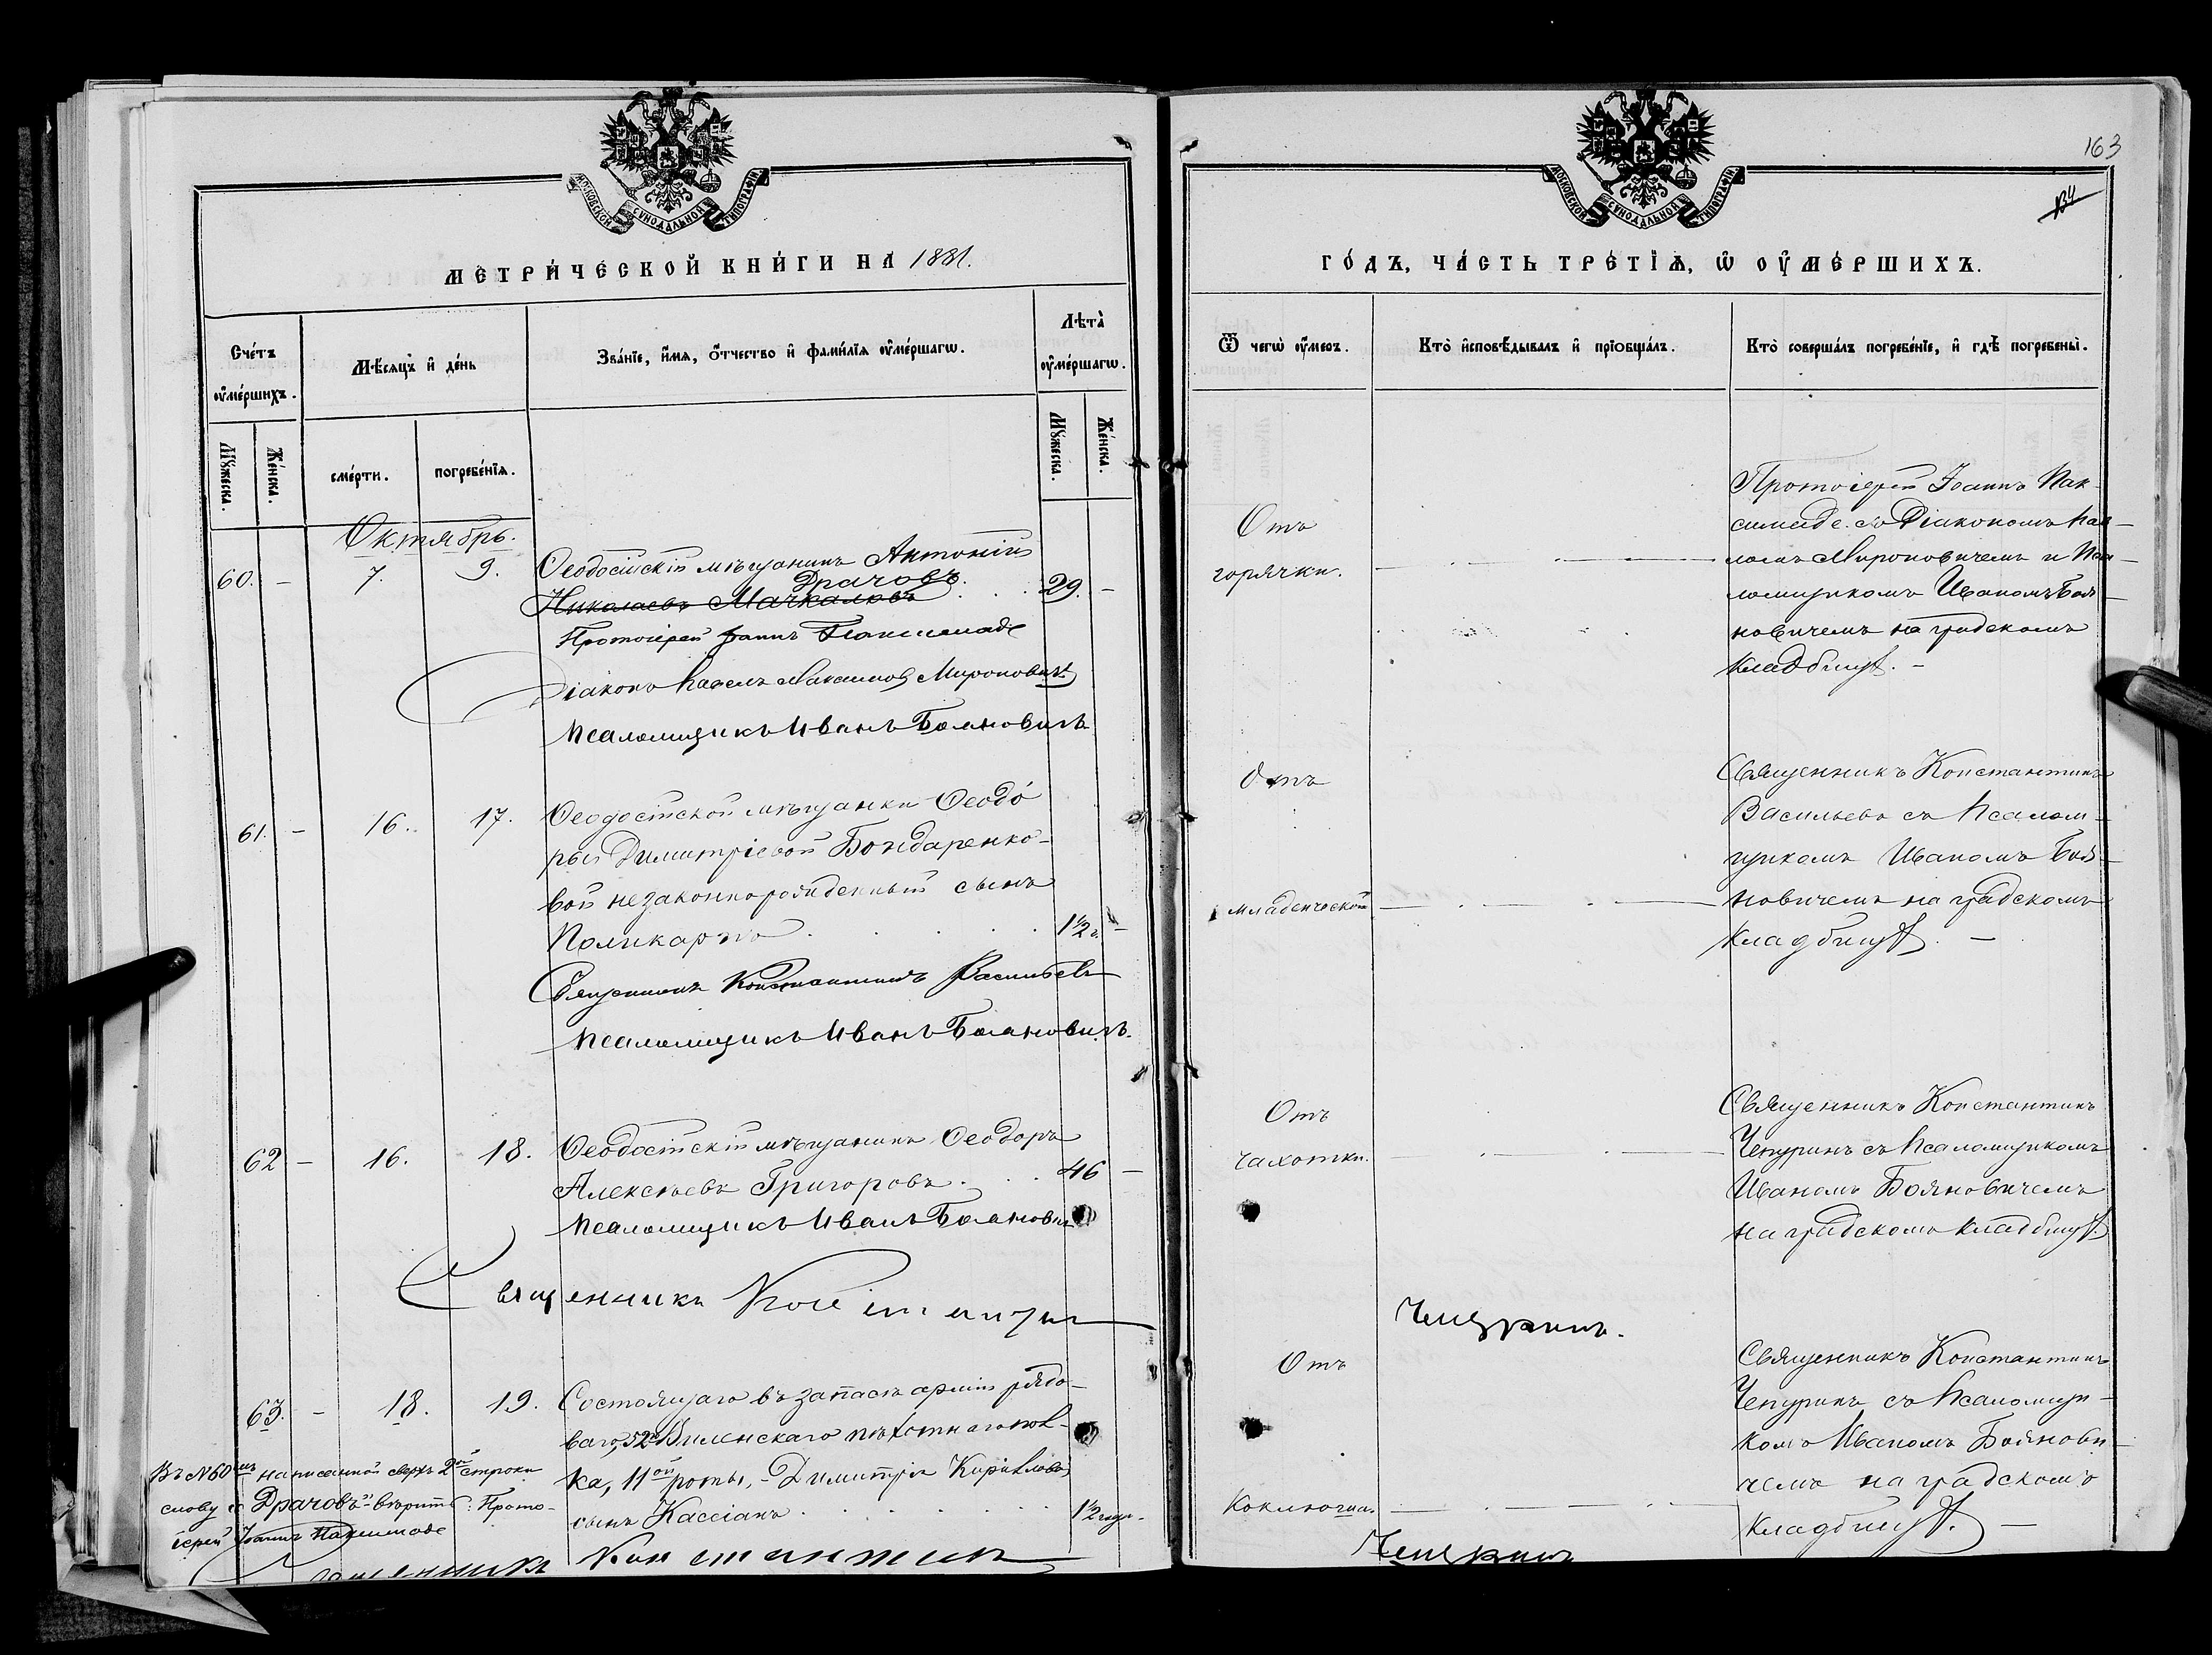 МОСКОВСКОЙ СѴНОДАЛЬНОЙ ТИПОГРАФІИ
МЕТРИ́ЧЕСКОЙ КНИ́ГИ НА 1881.
Сче́тъ ᲂу҆ме́ршихъ.
Мѣ́сяцъ и҆ де́нь
Зва́нїе, и҆́мѧ, ѻ҆́тчество и҆ фами́лїѧ ᲂу҆ме́ршагѡ.
Лѣта̀ ᲂу҆ме́ршагѡ.
Мꙋ́жеска.
Же́нска.
сме́рти.
погребе́нїѧ.
Мꙋ́жеска.
Же́нска.
Октябрь.
60. - 7. 9. Ѳеодосійскій мѣщанинъ Антоній
Драчовъ
Николаевъ Мачкаловъ . . 29. -
Протоіерей Іоаннъ Паксимаде
Діаконъ Павелъ Максимов Мироновичъ
Псаломщикъ Иванъ Бояновичъ
61. - 16. 17. Ѳеодосійской мѣщанки Ѳеодо-
ры Димитріевой Бондаренко-
вой незаконнорожденный сынъ
Поликарпъ . . . . 1½ г. -
Священникъ Константинъ Васильевъ
Псаломщикъ Иванъ Бояновичъ.
62 - 16. 18. Ѳеодосійскій мѣщанинъ Ѳеодоръ
Алексѣевъ Григоровъ . . . 46 -
Псаломщикъ Иванъ Боянович
Священникъ Константин
63. - 18. 19. Состоящаго въ запасѣ арміи рядо-
ваго, 52го Виленскаго пѣхотнаго пол-
ка, 11ой роты, - Димитрія Кирилова
сынъ Кассіанъ . . . . 1½ года.
Въ №60мъ написанной сверхъ 2ой строки
слову „Драчовъ“ вѣрить: Прото-
іерей Іоаннъ Паксимаде
Священникъ Константинъ
163
МОСКОВСКОЙ СѴНОДАЛЬНОЙ ТИПОГРАФІИ
ГО́ДЪ, ЧА́СТЬ ТРЕ́ТЇѦ, Ѡ҆ ОУ҆МЕ́РШИХЪ.
Ѿ чегѡ̀ ᲂу҆́меръ.
Кто̀ и҆сповѣ́дывалъ и҆ прїобща́лъ.
Кто̀ соверша́лъ погребе́нїе, и҆ гдѣ̀ погребены̀.
Отъ
горячки.
Протоіерей Іоаннъ Пак-
симаде съ Діакономъ Пав-
ломъ Мироновичемъ и Пса-
ломщикомъ Иваномъ Боя-
новичемъ на градскомъ
кладбищѣ. -
Отъ
младенческой
Священникъ Константинъ
Васильевъ съ Псалом-
щикомъ Иваномъ Боя-
новичемъ на градскомъ
кладбищѣ. -
Отъ
чахотки.
Священникъ Константинъ
Чепуринъ съ Псаломщикомъ
Иваномъ Бояновичемъ
на градскомъ кладбищѣ.
Чепуринъ.
Отъ
Коклюша.
Священникъ Константинъ
Чепуринъ съ Псаломщи-
комъ Иваномъ Боянови-
чемъ на градскомъ
кладбищѣ. -
Чепуринъ